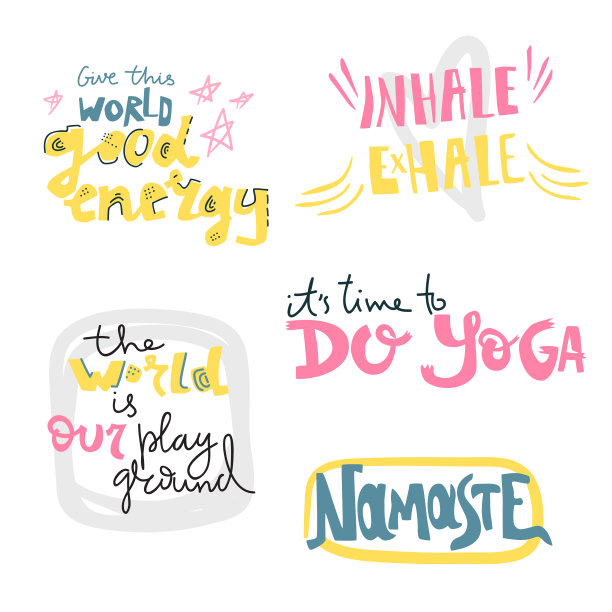 Give this
WORLD
good
energy
INHALE
EXHALE
the
world
is
our play
ground
it's time to
DO YOGA
NAMASTE